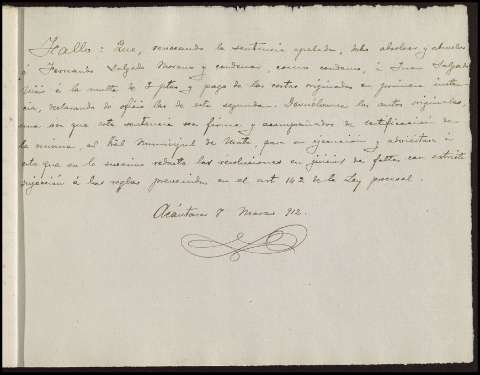 Fallo: Que, revocando la sentencia apelada, debo absolver y absuelvo
á Fernando Salgado Moreno y condenar, como condeno, á Juan Salgado
á la multa de 5 ptas. y pago de las costas originadas en primera instan-
cia, declarando de oficio las de esta segunda. Devuélvanse los autos originales,
una vez que esta sentencia sea firme y acompañados de certificación de
la misma, al Tral Municipal de para su ejecución y advirtiendo á
este que en lo sucesivo redacte las resoluciones en juicios de faltas con estricta
sujeción á las reglas prevenidas en el art 142 de la Ley procesal.
Alcántara 8 Marzo 912.